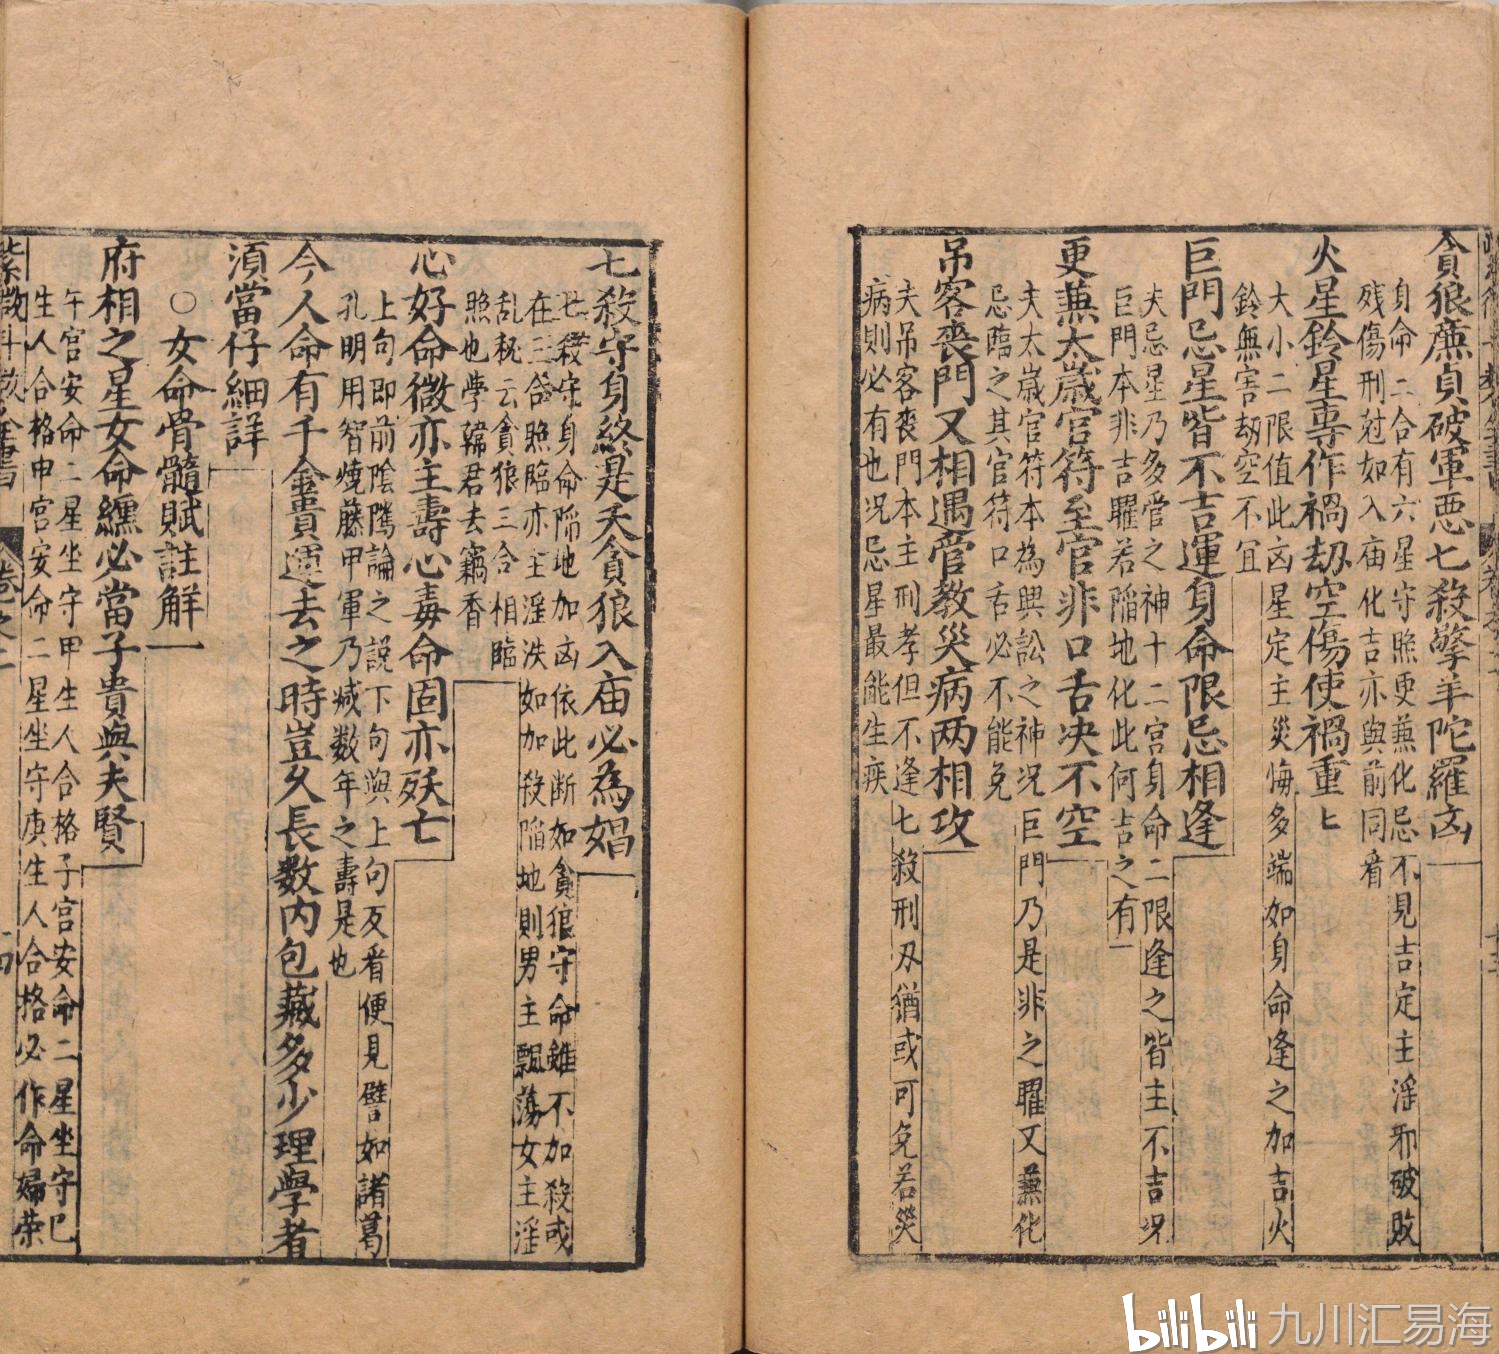 貪狼廉貞破軍惡七殺擎羊陀羅凶
身命二合有六星守照更蕪化忌不見吉定主淫邪破敗
残傷刑尅如入庙化吉亦與前同看
火星鈴星專作禍劫空傷使禍重
大小二限值此凶星定主災悔多端如身命逢之加吉火
鈴無害劫空不宜
巨門忌星皆不吉運身命限忌相逢
夫忌星乃多管之神十二宮身命二限逢之皆主不吉况
巨門本非吉曜若陷地化此何吉之有
更蕪太歲官符至官非口舌决不空
夫太歲官符本為興訟之神况巨門乃是非之曜又蕪化
忌臨之其官符口舌必不能免
吊客喪門又相遇管教災病两相攻
夫吊客喪門本主刑孝但不逢七殺刑刃猶或可免若災
病則必有也况忌星最能生疾
七殺守身終是夭貪狼入庙必為娼
七殺守身命陷地加凶依此断如貪狼守命雖不加殺或
在三合照臨亦主淫泆如加殺陷地則男主飄荡女主淫
乱秘云貪狼三合相臨
照也學韓君去竊香
心好命微亦主壽心毒命固亦殀亡
上句即前陰隲論之說下句與上句反看便見譬如諸葛
孔明用智燒藤甲軍乃减数年之壽是也
今人命有千金貴運去之時豈久長数内包藏多少理學者
須當仔細詳
○女命骨髓賦註解一
府相之星女命纏必當子貴與夫賢
午宮安命二星坐守甲生人合格子宮安命二星坐守巳
生人合格申宮安命二星坐守庚生人合格必作命婦荣
紫微斗数全書 卷之二
bilibili 九川汇易海